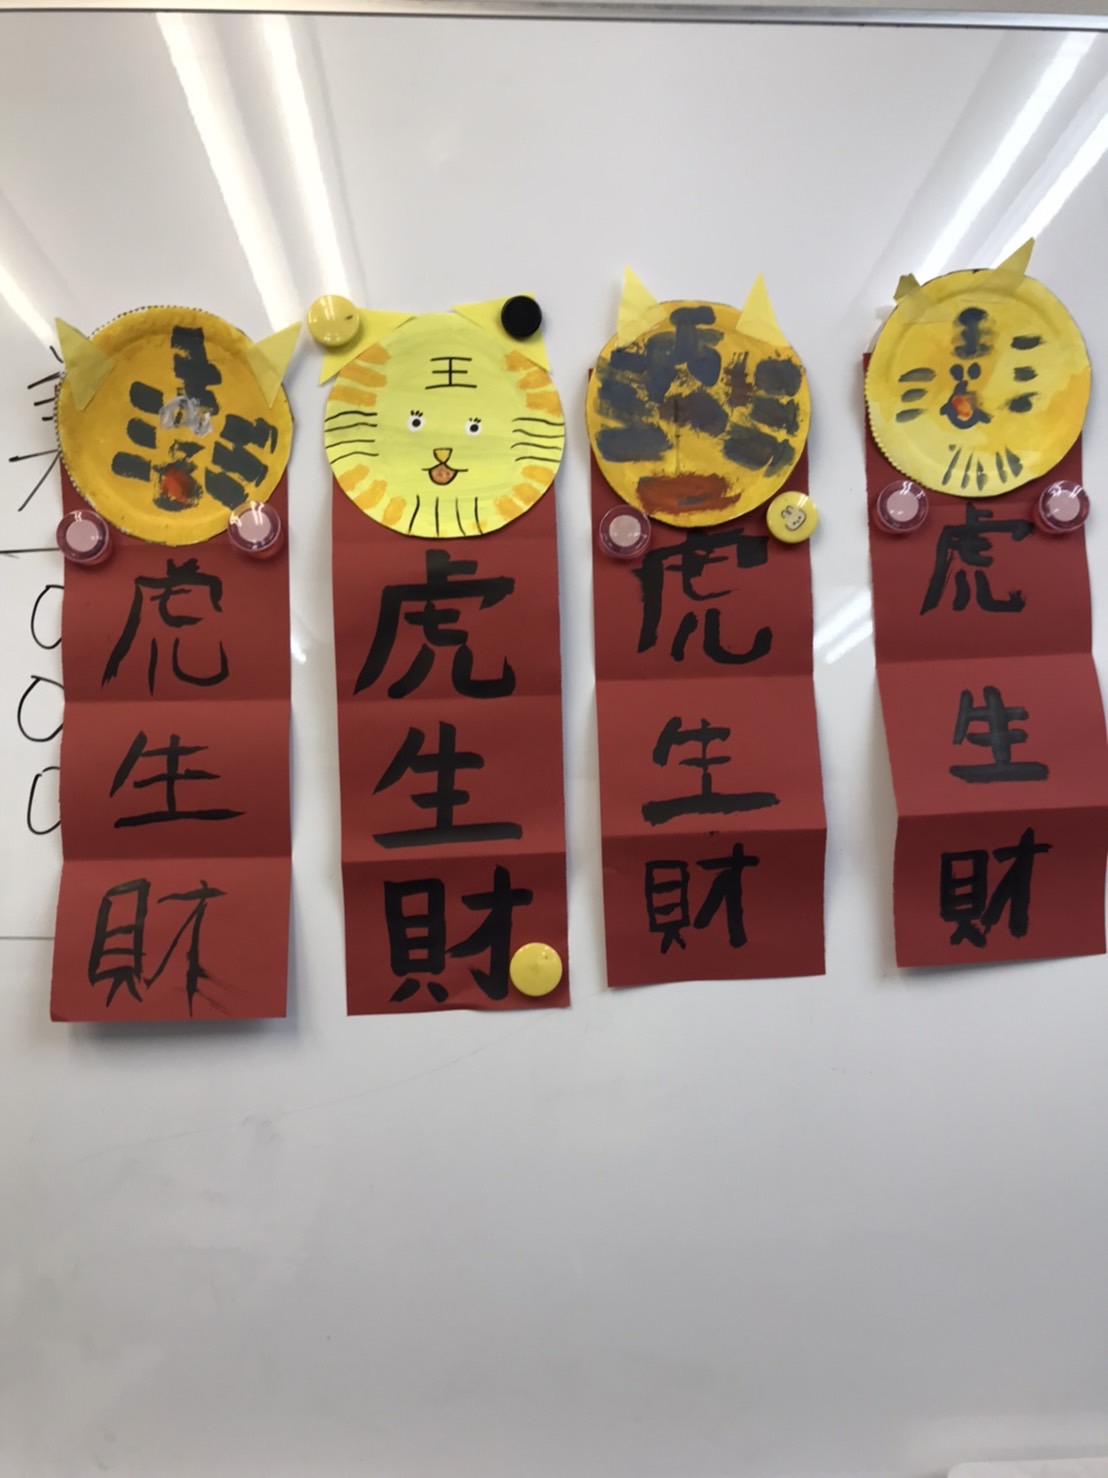 虎
生
財
王
虎
生
財
虎
生
財
虎
生
財